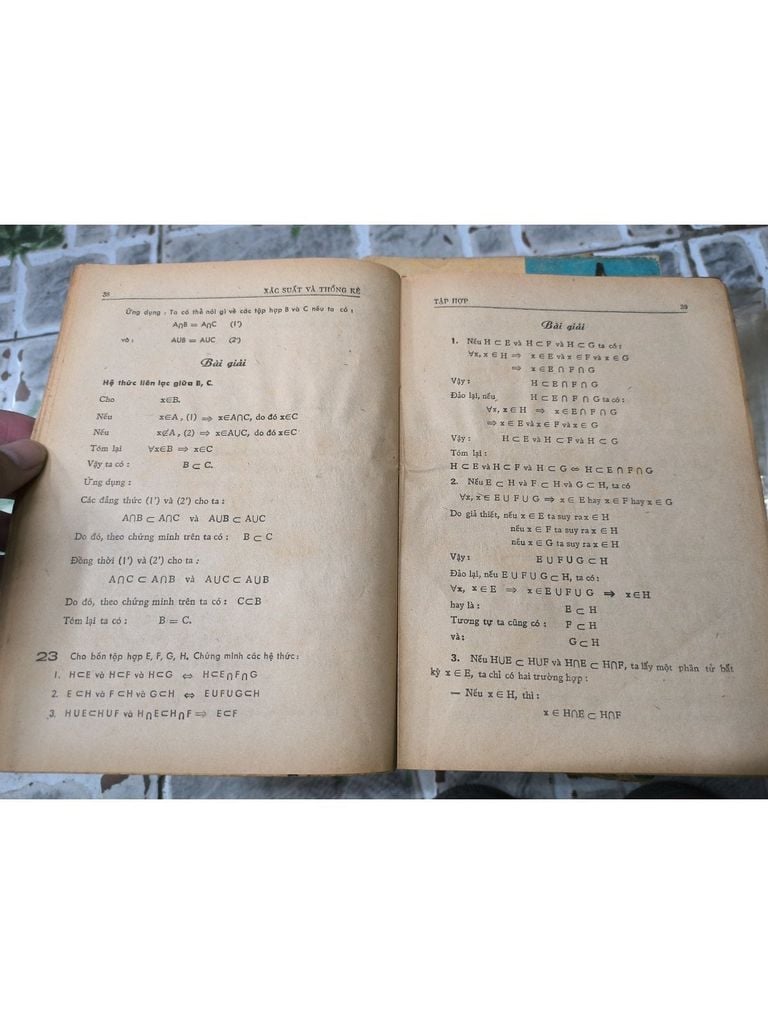 38 XÁC SUẤT VÀ THỐNG KÊ
Ứng dụng : Ta có thể nói gì về các tập hợp B và C nếu ta có :
A∩B = A∩C (1')
và : A∪B = A∪C (2')
Bài giải
Hệ thức liên lạc giữa B, C.
Cho x∈B.
Nếu x∈A , (1) ⇒ x∈A∩C, do đó x∈C
Nếu x∉A , (2) ⇒ x∈A∪C, do đó x∈C
Tóm lại ∀x∈B ⇒ x∈C
Vậy ta có : B ⊂ C.
Ứng dụng :
Các đẳng thức (1') và (2') cho ta :
A∩B ⊂ A∩C và A∪B ⊂ A∪C
Do đó, theo chứng minh trên ta có : B ⊂ C
Đồng thời (1') và (2') cho ta :
A∩C ⊂ A∩B và A∪C ⊂ A∪B
Do đó, theo chứng minh trên ta có : C⊂B
Tóm lại ta có : B = C.
23 Cho bốn tập hợp E, F, G, H. Chứng minh các hệ thức :
1. H⊂E và H⊂F và H⊂G ⇔ H⊂E∩F∩G
2. E⊂H và F⊂H và G⊂H ⇔ E∪F∪G⊂H
3. H∪E⊂H∪F và H∩E⊂H∩F ⇒ E⊂F
TẬP HỢP 39
Bài giải
1. Nếu H ⊂ E và H ⊂ F và H ⊂ G ta có :
∀x, x ∈ H ⇒ x ∈ E và x ∈ F và x ∈ G
⇒ x ∈ E ∩ F ∩ G
Vậy : H ⊂ E ∩ F ∩ G
Đảo lại, nếu H ⊂ E ∩ F ∩ G ta có :
∀x, x ∈ H ⇒ x ∈ E ∩ F ∩ G
⇒ x ∈ E và x ∈ F và x ∈ G
Vậy : H ⊂ E và H ⊂ F và H ⊂ G
Tóm lại :
H ⊂ E và H ⊂ F và H ⊂ G ∞ H ⊂ E ∩ F ∩ G
2. Nếu E ⊂ H và F ⊂ H và G ⊂ H, ta có
∀x, x ∈ E ∪ F ∪ G ⇒ x ∈ E hay x ∈ F hay x ∈ G
Do giả thiết, nếu x ∈ E ta suy ra x ∈ H
nếu x ∈ F ta suy ra x ∈ H
nếu x ∈ G ta suy ra x ∈ H
Vậy : E ∪ F ∪ G ⊂ H
Đảo lại, nếu E ∪ F ∪ G ⊂ H, ta có :
∀x, x ∈ E ⇒ x ∈ E ∪ F ∪ G ⇒ x ∈ H
hay là : E ⊂ H
Tương tự ta cũng có : F ⊂ H
và : G ⊂ H
3. Nếu H∪E ⊂ H∪F và H∩E ⊂ H∩F, ta lấy một phần tử bất
kỳ x ∈ E, ta chỉ có hai trường hợp :
— Nếu x ∈ H, thì :
x ∈ H∩E ⊂ H∩F